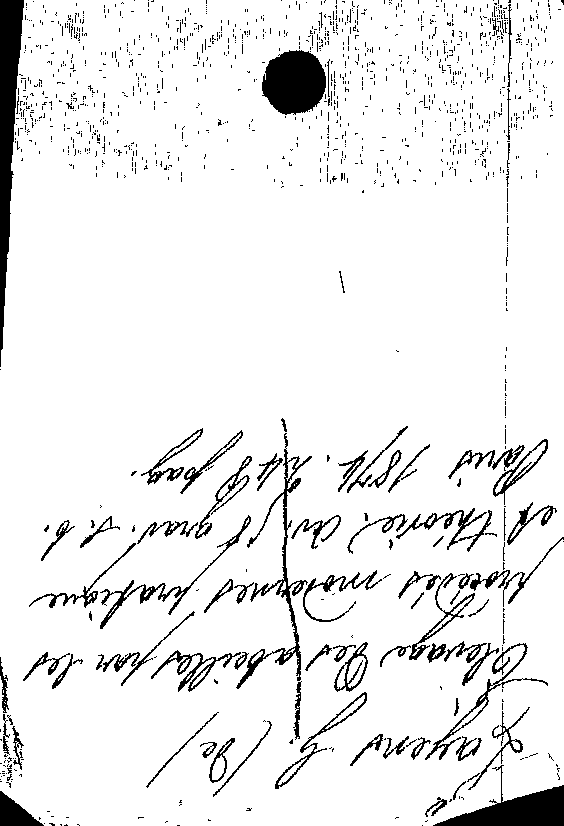 Layens G. (De)
Elevage Des abeilles par les
procédés modernes pratique
et théorie. Av. grav. s. b.
Paris 1874. 248 pag.